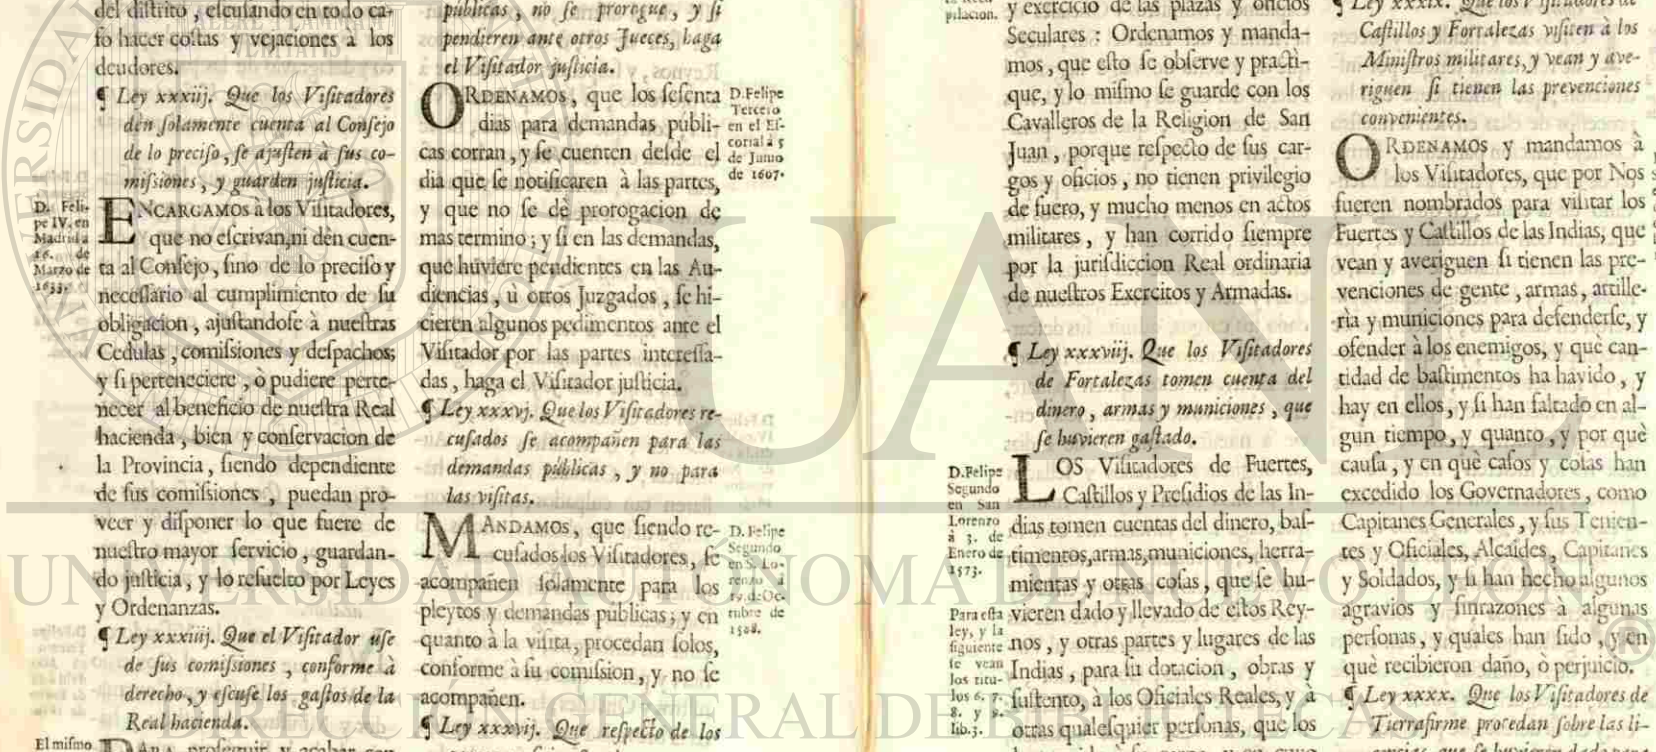 del distrito, escusando en todo ca-
so hacer costas y vejaciones à los
deudores.
¶ Ley xxxiij. Que los Visitadores
dèn solamente cuenta al Consejo
de lo preciso, se ajusten à sus co-
misiones, y guarden justicia.
D. Feli-
pe IV. en
Madrid à
16. de
Marzo de
1633.
ENCARGAMOS à los Visitadores,
que no escrivan, ni dèn cuen-
ta al Consejo, sino de lo preciso y
necessario al cumplimiento de su
obligacion, ajustandose à nuestras
Cedulas, comisiones y despachos;
y si perteneciere, ò pudiere perte-
necer al beneficio de nuestra Real
hacienda, bien y conservacion de
la Provincia, siendo dependiente
de sus comisiones, puedan pro-
veer y disponer lo que fuere de
nuestro mayor servicio, guardan-
do justicia, y lo resuelto por Leyes
y Ordenanzas.
¶ Ley xxxiiij. Que el Visitador use
de sus comisiones, conforme à
derecho, y escuse los gastos de la
Real hacienda.
El mismo
PARA proseguir y acabar con
publicas, no se prorogue, y si
pendieren ante otros Jueces, haga
el Visitador justicia.
ORDENAMOS, que los sesenta
dias para demandas publi-
cas corran, y se cuenten desde el
dia que se notificaren à las partes,
y que no se dè prorogacion de
mas termino; y si en las demandas,
que huviere pendientes en las Au-
diencias, ù otros Juzgados, se hi-
cieren algunos pedimentos ante el
Visitador por las partes interessa-
das, haga el Visitador justicia.
D. Felipe
Tercero
en el Es-
corial à 5
de Junio
de 1607.
¶ Ley xxxvj. Que los Visitadores re-
cusados se acompañen para las
demandas públicas, y no para
las visitas.
MANDAMOS, que siendo re-
cusados los Visitadores, se
acompañen solamente para los
pleytos y demandas públicas; y en
quanto à la visita, procedan solos,
conforme à su comission, y no se
acompañen.
D. Felipe
Segundo
en S. Lo-
renzo à
19. de Oc-
tubre de
1588.
¶ Ley xxxvij. Que respecto de los
pilacion.
y exercicio de las plazas y oficios
Seculares: Ordenamos y manda-
mos, que esto se observe y practi-
que, y lo mismo se guarde con los
Cavalleros de la Religion de San
Juan, porque respecto de sus car-
gos y oficios, no tienen privilegio
de fuero, y mucho menos en actos
militares, y han corrido siempre
por la jurisdiccion Real ordinaria
de nuestros Exercitos y Armadas.
¶ Ley xxxviij. Que los Visitadores
de Fortalezas tomen cuenta del
dinero, armas y municiones, que
se huvieren gastado.
D. Felipe
Segundo
en San
Lorenzo
à 3. de
Enero de
1573.
Para esta
ley, y la
siguiente
se vean
los titu-
los 6. 7.
8. y 9.
lib. 3.
LOS Visitadores de Fuertes,
Castillos y Presidios de las In-
dias tomen cuentas del dinero, bas-
timentos, armas, municiones, herra-
mientas y otras cosas, que se hu-
vieren dado y llevado de estos Rey-
nos, y otras partes y lugares de las
Indias, para su dotacion, obras y
sustento, à los Oficiales Reales, y à
otras qualesquier personas, que los
¶ Ley xxxix. Que los Visitadores de
Castillos y Fortalezas visiten à los
Ministros militares, y vean y ave-
riguen si tienen las prevenciones
convenientes.
ORDENAMOS y mandamos à
los Visitadores, que por Nos
fueren nombrados para visitar los
Fuertes y Castillos de las Indias, que
vean y averiguen si tienen las pre-
venciones de gente, armas, artille-
rìa y municiones para defenderse, y
ofender à los enemigos, y què can-
tidad de bastimentos ha havido, y
hay en ellos, y si han faltado en al-
gun tiempo, y quanto, y por què
causa, y en què casos y cosas han
excedido los Governadores, como
Capitanes Generales, y sus Tenien-
tes y Oficiales, Alcaides, Capitanes
y Soldados, y si han hecho algunos
agravios y sinrazones à algunas
personas, y quáles han sido, y en
què recibieron daño, ò perjuicio.
¶ Ley xxxx. Que los Visitadores de
Tierrafirme procedan sobre las li-
UANL
UNIVERSIDAD AUTÓNOMA DE NUEVO LEÓN
®
DIRECCIÓN GENERAL DE BIBLIOTECAS